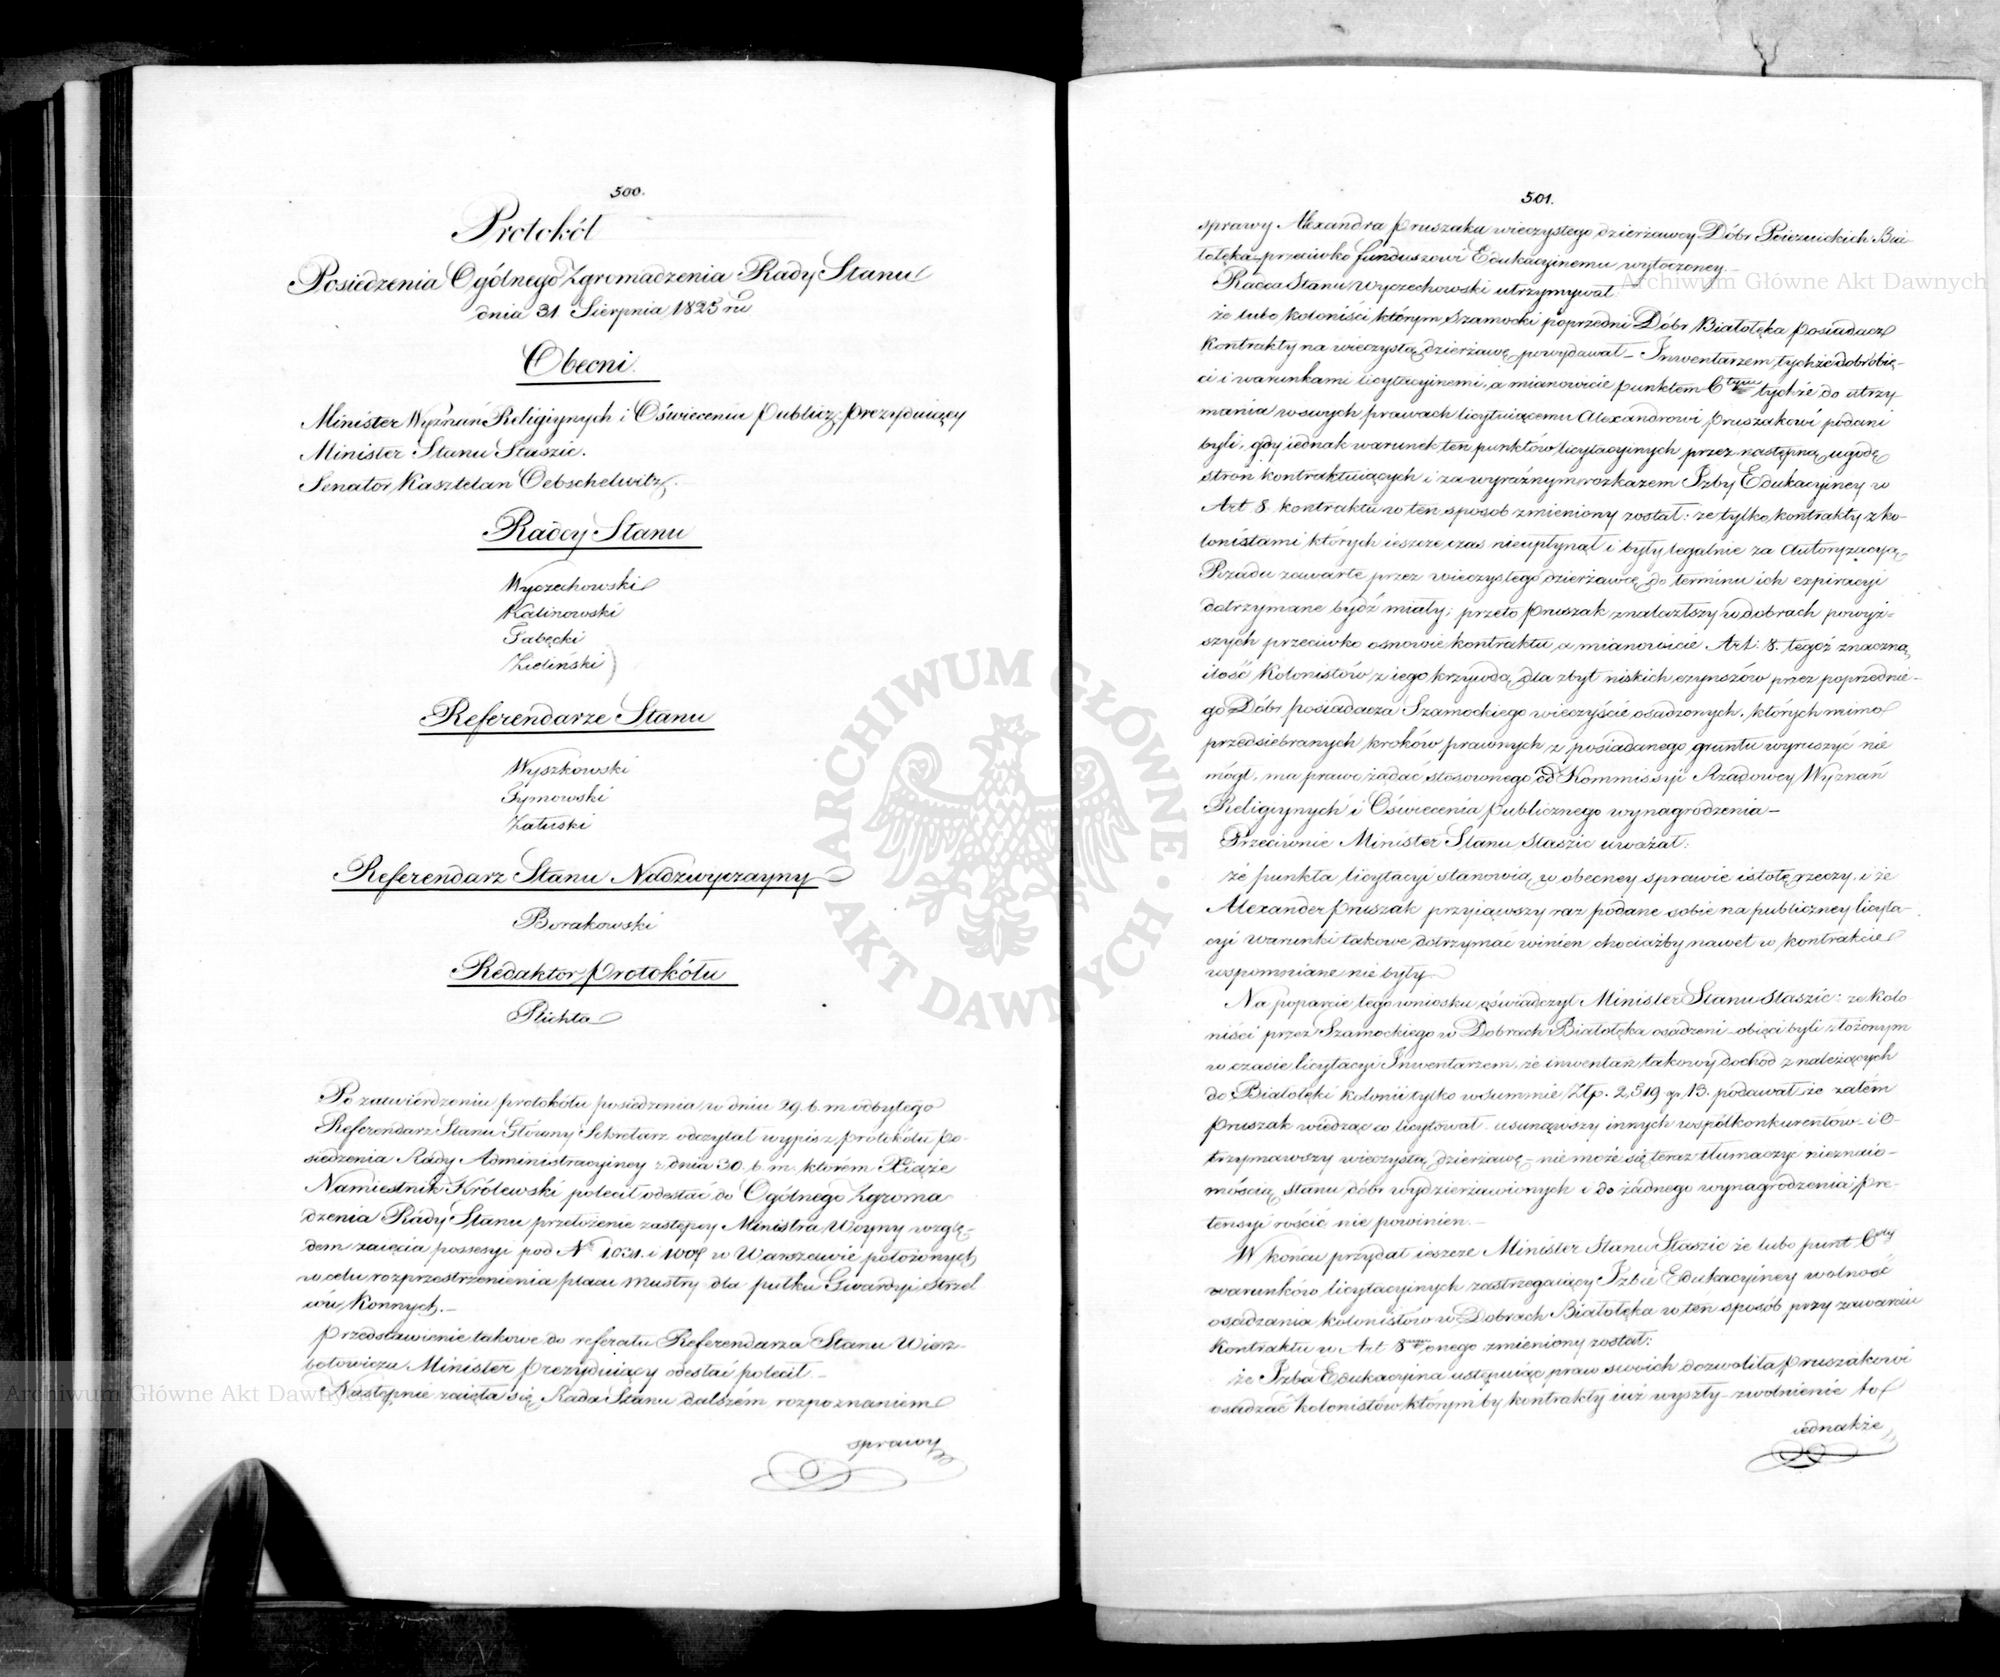 500.
Protokół
Posiedzenia Ogólnego Zgromadzenia Rady Stanu
dnia 31. Sierpnia 1825 ru
Obecni.
Minister Wyznań Religiynych i Oświecenia Publicz: Prezyduiący
Minister Stanu Staszic.
Senator Kasztelan Oebschelwitz.
Radcy Stanu
Wyczechowski
Kalinowski
Łabęcki
Zieliński
Referendarze Stanu
Wyszkowski
Tymowski
Załuski
Referendarz Stanu Nadzwyczayny
Borakowski
Redaktor Protokółu
Plichta
Po zatwierdzeniu protokółu posiedzenia w dniu 29. b. m. odbytego
Referendarz Stanu Główny Sekretarz odczytał wypis z protokółu Po-
siedzenia Rady Administracyiney z dnia 30. b. m. którem Xiąże
Namiestnik Królewski polecił odesłać do Ogólnego Zgroma
dzenia Rady Stanu przełożenie zastępcy Ministra Woyny wzglę-
dem zaięcia possesyi pod No 1031. i 1007 w Warszawie położonych
w celu rozprzestrzenienia placu mustry dla pułku Gwardyi Strzel
ców Konnych.—
Przedstawienie takowe do referatu Referendarza Stanu Wierz-
bołowicza Minister Prezyduiący odesłać polecił.—
Następnie zaięła się Rada Stanu dalszém rozpoznaniem
sprawy
501.
sprawy Alexandra Pruszaka wieczystego dzierżawcy Dóbr Poiezuickich Bia-
łołęka przeciwko funduszowi Edukacyinemu wytoczoney.
Radca Stanu Wyczechowski utrzymywał:
że lubo koloniści którym Szamocki poprzedni Dóbr Białołęka posiadacz
kontrakty na wieczystą dzierżawę powydawał – Inwentarzem tychże dóbr obię-
ci i warunkami licytacyinemi, a mianowicie punktem 6tym tychże do utrzy-
mania w swych prawach licytuiącemu Alexandrowi Pruszakowi podani
byli, gdy iednak warunek ten punktów licytacyinych przez następną ugodę
stron kontraktuiących i za wyraźnym rozkazem Izby Edukacyiney w
Art 8. kontraktu w ten sposób zmieniony został: że tylko kontrakty z ko-
lonistami których ieszcze czas nieupłynął i były legalnie za autoryzacyą
Rządu zawarte przez wieczystego dzierżawcę do terminu ich expiracyi
dotrzymane bydź miały; przeto Pruszak znalazłszy w dobrach powyż-
szych przeciwko osnowie kontraktu a mianowicie Art: 8. tegoż znaczną
ilość Kolonistów z iego krzywdą dla zbyt niskich czynszów przez poprzednie-
go Dóbr posiadacza Szamockiego wieczyście osadzonych, których mimo
przedsiebranych kroków prawnych z posiadanego gruntu wyruszyć nie
mógł, ma prawo żądać stosownego od Kommissyi Rządowey Wyznań
Religiynych i Oświecenia Publicznego wynagrodzenia –
Przeciwnie Minister Stanu Staszic uważał:
że punkta licytacyi stanowią w obecney sprawie istotę rzeczy, i że
Alexander Pruszak przyiąwszy raz podane sobie na publiczney licyta-
cyi warunki takowe dotrzymać winien chociażby nawet w kontrakcie
wspomniane nie były.
Na poparcie tego wniosku oświadczył Minister Stanu Staszic: że kolo
niści przez Szamockiego w Dobrach Białołęka osadzeni – obięci byli złożonym
w czasie licytacyi Inwentarzem, że inwentarz takowy dochód z należących
do Białołęki kolonii tylko w summie Złp. 2,519 gr 13. podawał – że zatém
Pruszak wiedząc co licytował – usunąwszy innych współkonkurentów – i o-
trzymawszy wieczystą dzierżawę – nie może się teraz tłumaczyć nieznaio-
mością stanu dóbr wydzierżawionych i do żadnego wynagrodzenia pre-
tensyi rościć nie powinien.—
W końcu przydał ieszcze Minister Stanu Staszic że lubo punt 6ty
warunków licytacyinych zastrzegaiący Izbie Edukacyiney wolność
osadzania kolonistów w Dobrach Białołęka w ten sposób przy zawarciu
kontraktu w Art 8 onego zmieniony został:
że Izba Edukacyina ustępuiąc praw swoich dozwoliła Pruszakowi
osadzać kolonistów którym by kontrakty iuż wyszły – zwolnienie to
iednakże
Archiwum Główne Akt Dawnych
ARCHIWUM GŁÓWNE · AKT DAWNYCH ·
Archiwum Główne Akt Dawnych